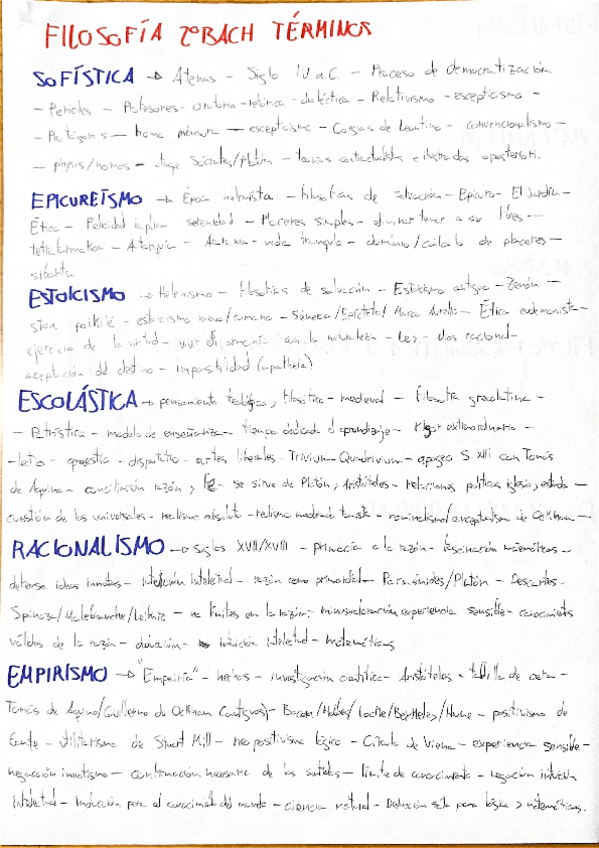 FILOSOFÍA 2ºBACH TÉRMINOS
SOFÍSTICA → Atenas - Siglo IV a.C. - Proceso de democratización
- Pericles - Profesores - oratoria - retórica - dialéctica - Relativismo - escepticismo -
- Protágoras - homo mensura - escepticismo - Gorgias de Leontino - convencionalismo -
- physis/nomos - Sócrates/Platón - teorías contractualistas e ilustradas a posteriori.
EPICUREÍSMO → Época helenista - filosofías de salvación - Epicuro - El Jardín -
Ética - Felicidad implica serenidad - Placeres simples - eliminar temor a ser libres -
tetrafarmakon - Autarquía - Ataraxia - vida tranquila - dominio/cálculo de placeres -
ESTOICISMO → Helenismo - filosofías de salvación - Estoicismo antiguo - Zenón -
stoa poikilé - estoicismo nuevo/romano - Séneca/Epícteto/Marco Aurelio - Ética eudemonista -
ejercicio de la virtud - vivir en armonía con la naturaleza - Ley - dios racional -
aceptación del destino - imposibilidad (apatheia)
ESCOLÁSTICA → pensamiento teológico y filosófico - medieval - filosofía grecolatina -
- Patrística - modelo de enseñanza - tiempo dedicado al aprendizaje - rigor extraordinario -
- lectio - quaestio - disputatio - artes liberales - Trivium - Quadrivium - apogeo S.XIII con Tomás
de Aquino - conciliación razón y fe - se sirve de Platón y Aristóteles - relaciones políticas iglesia y estado -
cuestión de los universales - realismo absoluto - realismo moderado tomista - nominalismo/conceptualismo de Ockham -
RACIONALISMO → Siglos XVII/XVIII - primacía a la razón - fascinación matemáticas -
defensa ideas innatas - intuición intelectual - razón como primordial - Parménides/Platón - Descartes -
Spinoza/Malebranche/Leibniz - no límites en la razón - minusvaloración experiencia sensible - conocimiento
válidos de la razón - deducción - intuición intelectual - matemáticas
EMPIRISMO → "Empeiría" - hechos - investigación científica - Aristóteles - tablilla de cera -
Tomás de Aquino/Guillermo de Ockham (antiguos) - Bacon/Hobbes/Locke/Berkeley/Hume - positivismo de
Comte - utilitarismo de Stuart Mill - neopositivismo lógico - Círculo de Viena - experiencia sensible -
negación innatismo - confirmación necesaria de los sentidos - límite de conocimiento - negación intuición
intelectual - Inducción para el conocimiento del mundo - ciencia natural - Deducción sólo para lógica y matemáticas.